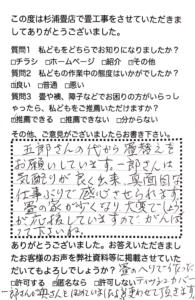 この度は杉浦畳店で畳工事をさせていただきま
してありがとうございました。
質問1 私どもをどちらでお知りになりましたか?
□チラシ □ホームページ □紹介 □その他
質問2 私どもの作業中の態度はいかがでしたか?
□良い □普通 □悪い
質問3 畳や襖、障子などでお困りの方がいらっし
ゃったら、私どもをご推薦いただけますか?
□推薦できる □推薦できない □分からない
その他、ご意見がございましたらお書き下さい。
五郎さんの代から畳替えを
お願いしています。一郎さんは
気配りが良く出来、真面目な
仕事ぶりで感心させられます。
畳の家が少くなり大変でしょう
が応援していますのでがんば
って下さいね。
ありがとうございました。お答えいただきまし
たお客様のお声を弊社資料等に掲載させていた
だいてもよろしいでしょうか?
□許可する □匿名なら □許可しない